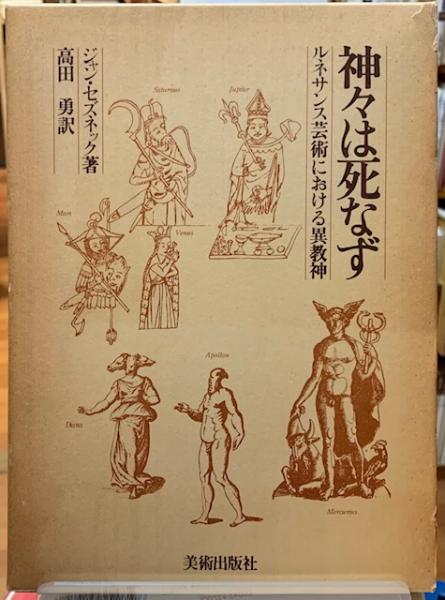 神々は死なず
ルネサンス芸術における異教神
ジャン・セズネック著
高田 勇訳
Saturnus
Jupiter
Mars
Venus
Apollon
Diana
Mercurius
美術出版社